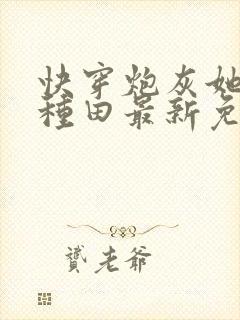 快穿炮灰她
種田最新免
贊老爺